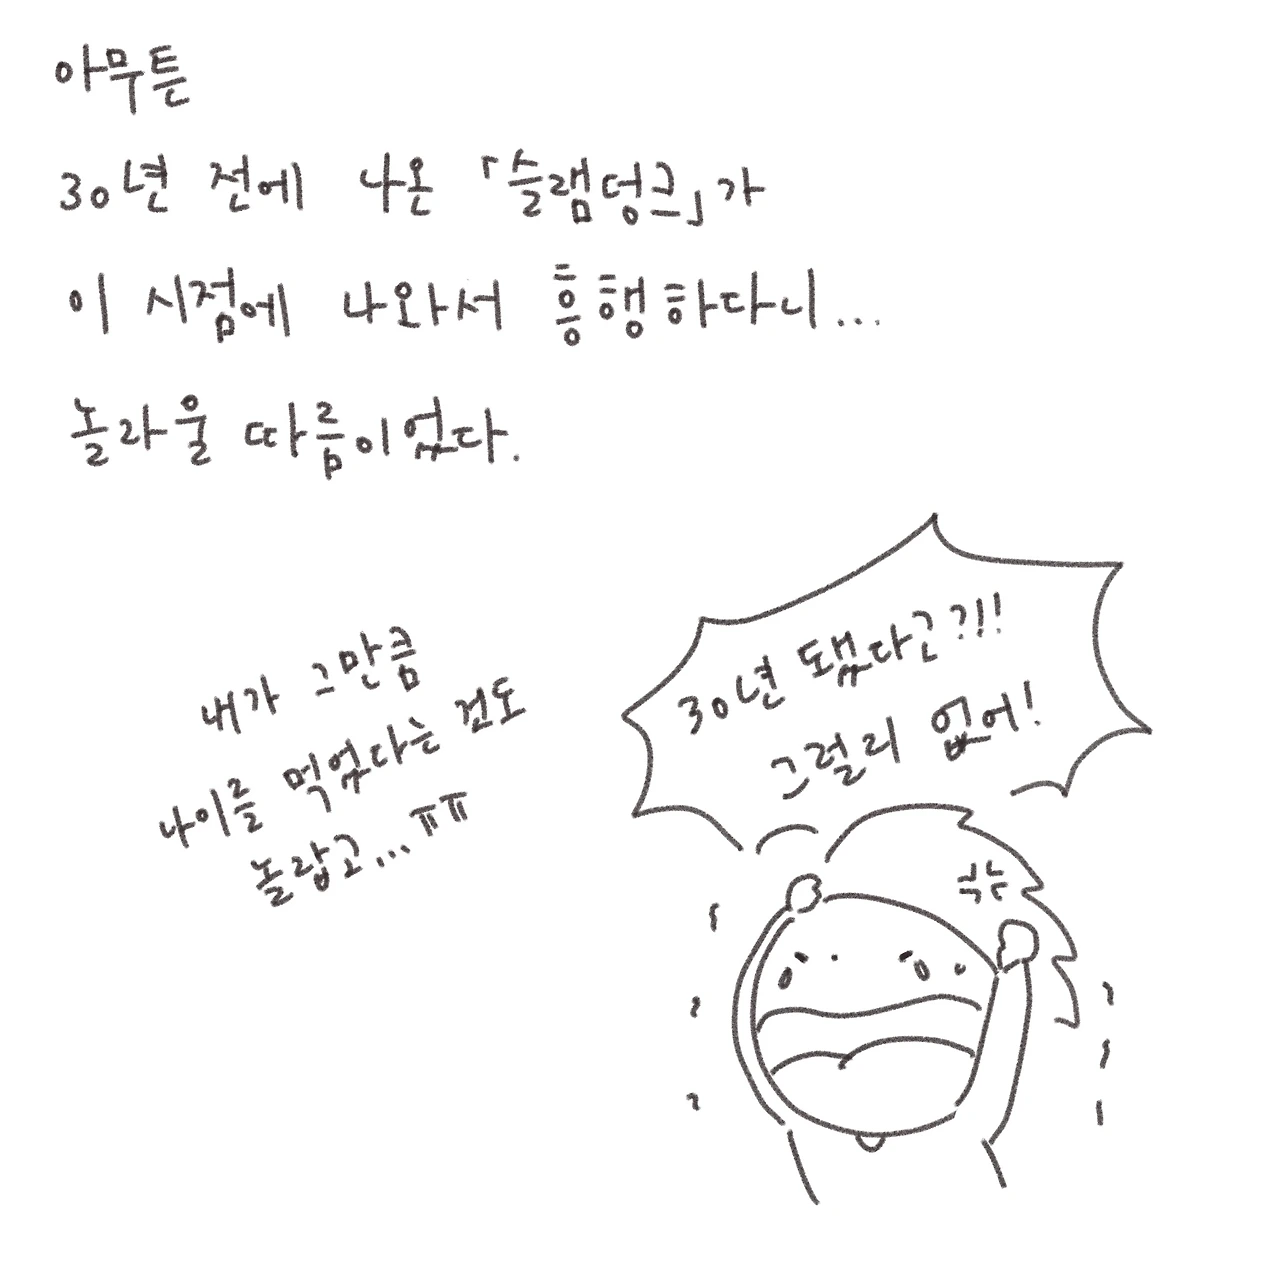 아무튼
30년 전에 나온 「슬램덩크」가
이 시점에 나와서 흥행하다니...
놀라울 따름이었다.
내가 그만큼
나이를 먹었다는 것도
놀랍고...ㅠㅠ
30년 됐다고?!!
그럴리 없어!